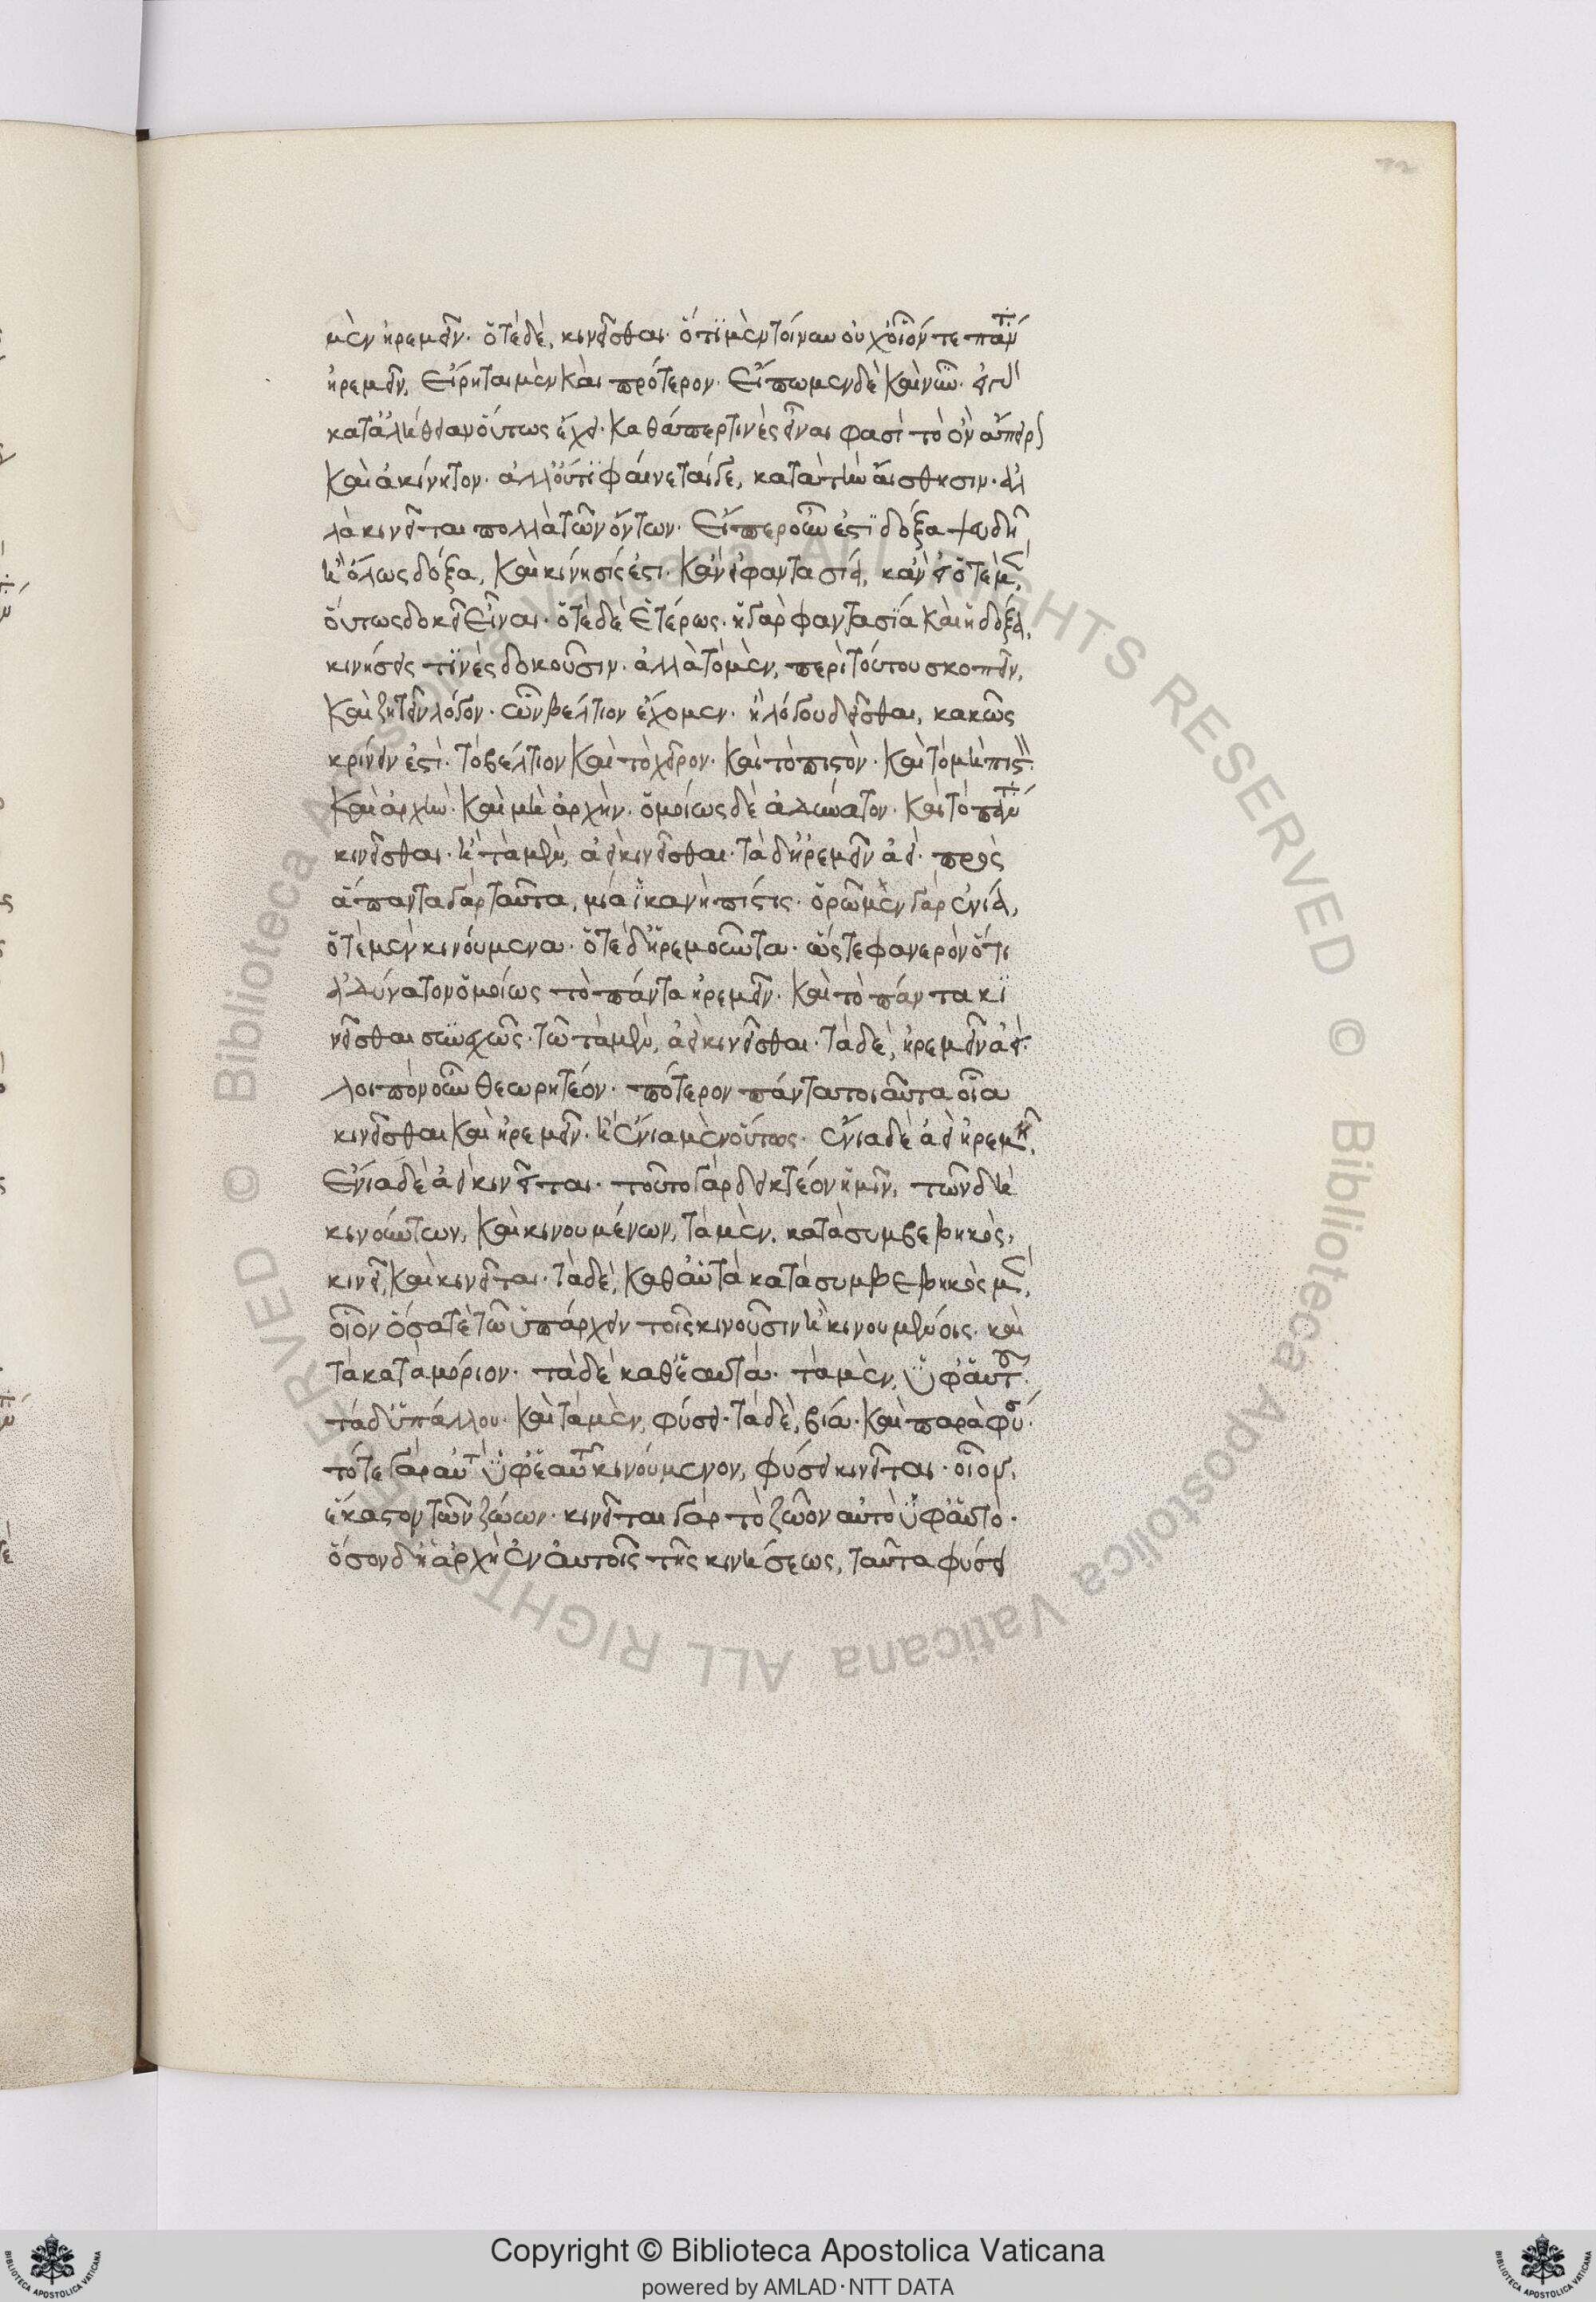 72
μὲν ἠρεμεῖν· ὁτὲ δὲ, κινεῖσθαι· ὅτι μὲν τοίνυν οὐχ οἷόν τε πάντ
ἠρεμεῖν, εἴρηται μὲν καὶ πρότερον· εἴπωμεν δὲ καὶ νῦν· εἰ γὰρ
κατ' ἀλήθειαν οὕτως ἔχει· καθάπερ τινές εἶναι φασὶ τὸ ὂν ἄπειρ
καὶ ἀκίνητον· ἀλλ' οὔτι φαίνεταί γε, κατὰ τὴν αἴσθησιν· ἀλ
λὰ κινεῖται πολλὰ τῶν ὄντων· εἴπερ οὖν ἐστὶ δόξα ψευδὴ
ἢ ὅλως δόξα, καὶ κίνησίς ἐστι· κἂν εἰ φαντασία, κἂν εἰ ὁτὲ μὲν
οὕτως δοκεῖ εἶναι· ὁτὲ δὲ ἑτέρως· ἡ γὰρ φαντασία καὶ ἡ δόξα,
κινήσεις τινὲς δοκοῦσιν· ἀλλὰ τὸ μὲν, περὶ τούτου σκοπεῖν,
καὶ ζητεῖν λόγον· ὧν βέλτιον ἔχομεν· ἢ λόγου δεῖσθαι, κακῶς
κρίνειν ἐστὶ· τὸ βέλτιον καὶ τὸ χεῖρον· καὶ τὸ πιστὸν· καὶ τὸ μὴ πιστ
καὶ ἀρχὴν· καὶ μὴ ἀρχὴν· ὁμοίως δὲ ἀδύνατον· καὶ τὸ πάντ
κινεῖσθαι· ἢ τὰ μὲν, ἀεὶ κινεῖσθαι· τὰ δ' ἠρεμεῖν ἀεί· πρὸς
ἅπαντα γὰρ ταῦτα, μία ἱκανὴ πίστις· ὁρῶμεν γὰρ ἔνια,
ὁτὲ μὲν κινούμενα· ὁτὲ δ' ἠρεμοῦντα· ὥστε φανερὸν ὅτι
ἀδύνατον ὁμοίως τὸ πάντα ἠρεμεῖν· καὶ τὸ πάντα κι
νεῖσθαι συνεχῶς· τῶ τὰ μὲν, ἀεὶ κινεῖσθαι· τὰ δὲ, ἠρεμεῖν ἀεί·
λοιπὸν οὖν θεωρητέον· πότερον πάντα τοιαῦτα οἷα
κινεῖσθαι καὶ ἠρεμεῖν· ἢ ἔνια μὲν οὕτως· ἔνια δὲ ἀεὶ ἠρεμεῖ,
ἔνια δὲ ἀεὶ κινεῖται· τοῦτο γὰρ δεικτέον ἡμῖν, τῶν δὴ
κινούντων, καὶ κινουμένων, τὰ μὲν, κατὰ συμβεβηκὸς,
κινεῖ, καὶ κινεῖται· τὰ δὲ, καθ' αὑτὰ κατὰ συμβεβηκὸς μὲν,
οἷον ὅσα τε τῶ ὑπάρχειν τοῖς κινοῦσιν ἢ κινουμένοις· καὶ
τὰ κατὰ μόριον· τὰ δὲ καθ' ἑαυτά· τὰ μὲν, ὑφ' αὑτ
τὰ δ' ὑπ' ἄλλου· καὶ τὰ μὲν, φύσει· τὰ δὲ, βία· καὶ παρὰ φύσ
τό τε γὰρ αὐτ ὑφ' ἑαυτ κινούμενον, φύσει κινεῖται· οἷον,
ἕκαστον τῶν ζώων· κινεῖται γὰρ τὸ ζῶον αὐτὸ ὑφ' αὑτό·
ὅσον δ' ἡ ἀρχὴ ἐν αὐτοῖς τῆς κινήσεως, ταῦτα φύσει
© Biblioteca Apostolica Vaticana ALL RIGHTS RESERVED © Biblioteca Apostolica Vaticana ALL RIGHTS RESERVED
Copyright © Biblioteca Apostolica Vaticana
powered by AMLAD·NTT DATA
BIBLIOTECA APOSTOLICA VATICANA
BIBLIOTECA APOSTOLICA VATICANA